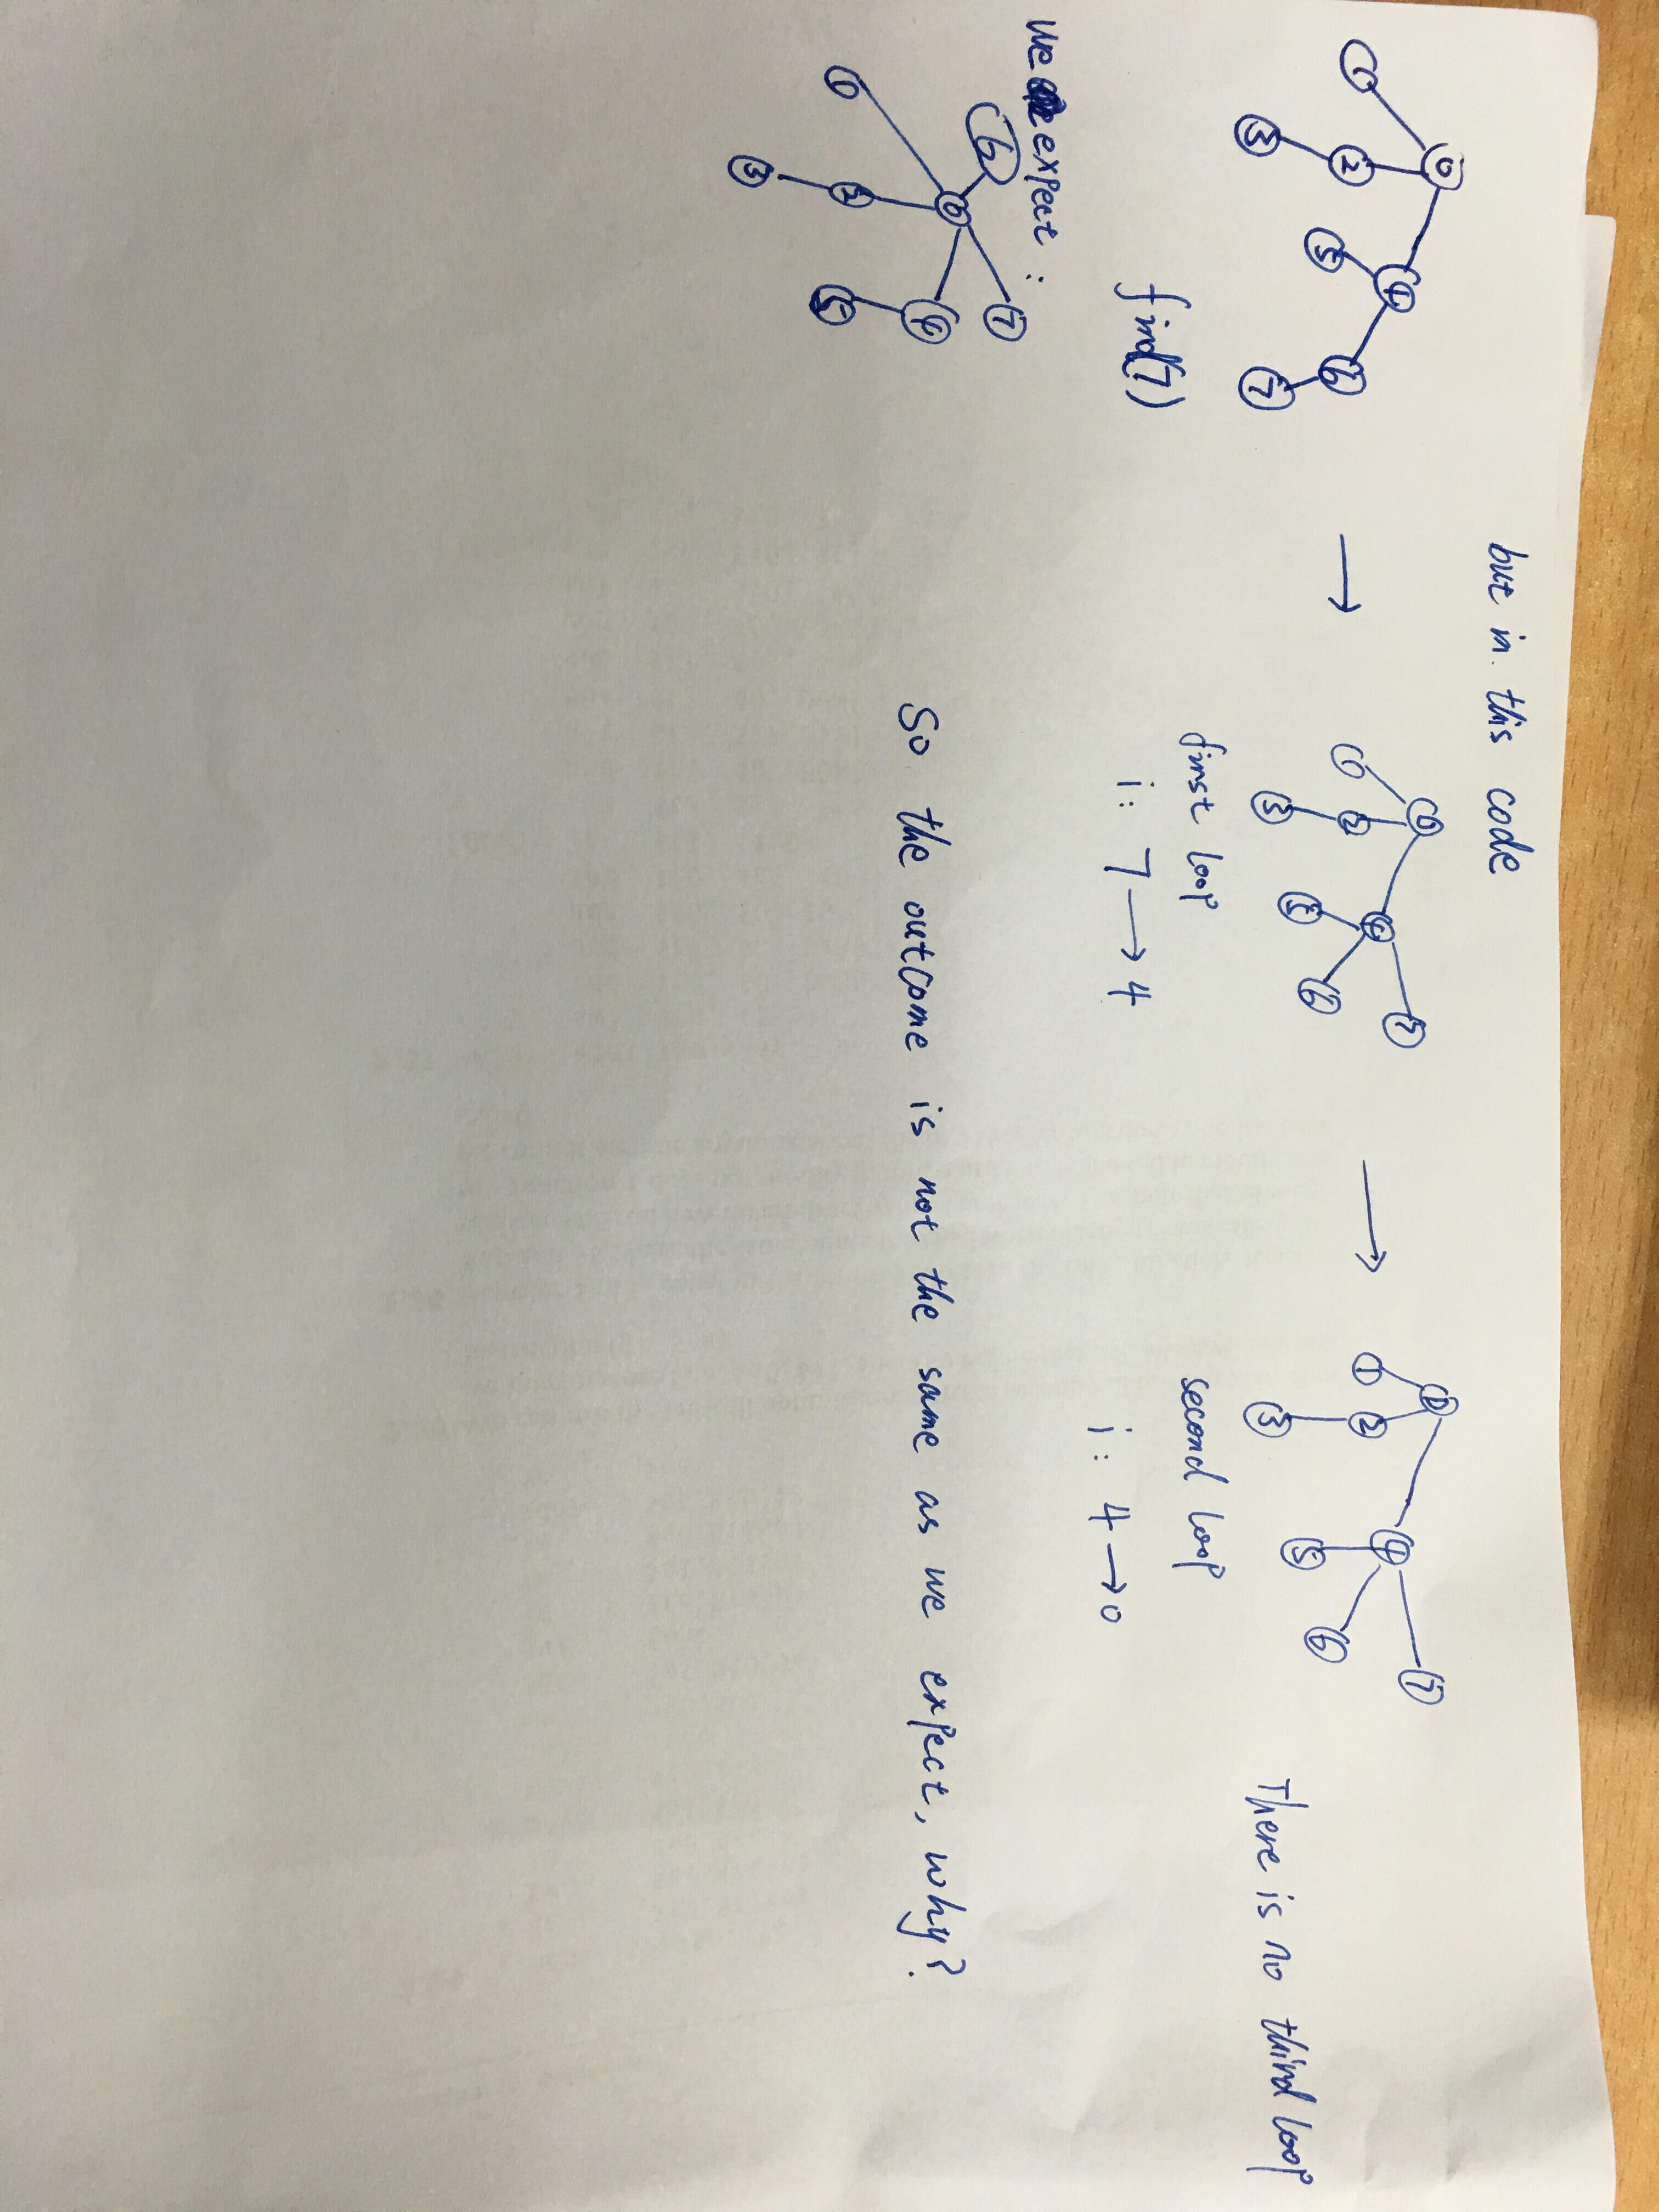 but in this code
0
1
2
3
4
5
6
7
find(7)
→
0
1
2
3
4
5
6
7
first loop
i: 7 → 4
→
0
1
2
3
4
5
6
7
second loop
i: 4 → 0
There is no third loop
we expect:
6
0
7
1
2
3
4
5
So the outcome is not the same as we expect, why?